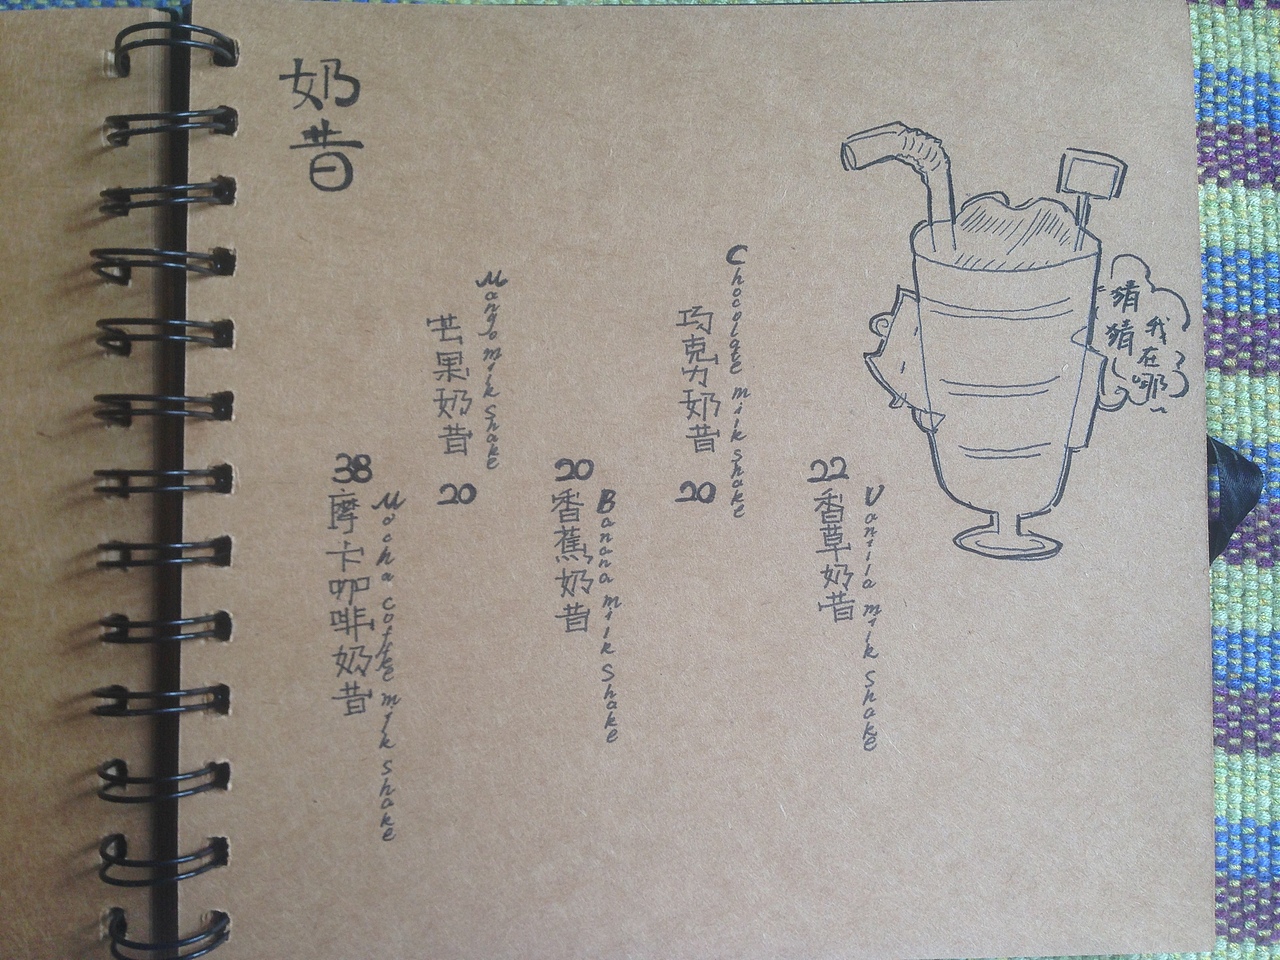 奶昔
38
摩卡咖啡奶昔
Mocha coffee milk shake
芒果奶昔
20
Mango milk shake
20
香蕉奶昔
Banana milk shake
巧克力奶昔
20
Chocolate milk shake
22
香草奶昔
Vanilla milk shake
猜猜
我在哪?